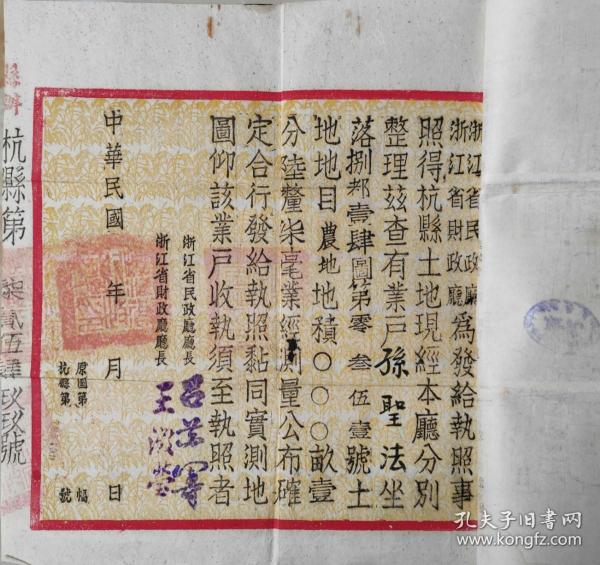 浙江省民政廳
浙江省財政廳為發給執照事
照得杭縣土地現經本廳分別
整理茲查有業戶孫聖法坐
落捌都壹肆圖第零叁伍壹號土
地地目農地地積〇〇〇畝壹
分陸釐柒毫業經測量公布確
定合行發給執照黏同實測地
圖仰該業戶收執須至執照者
浙江省民政廳廳長
浙江省財政廳廳長
中華民國 年 月 日
原圖第 幅
杭縣第 號
杭縣第 柒貳伍肆玖玖號
孔夫子旧书网
www.kongfz.com